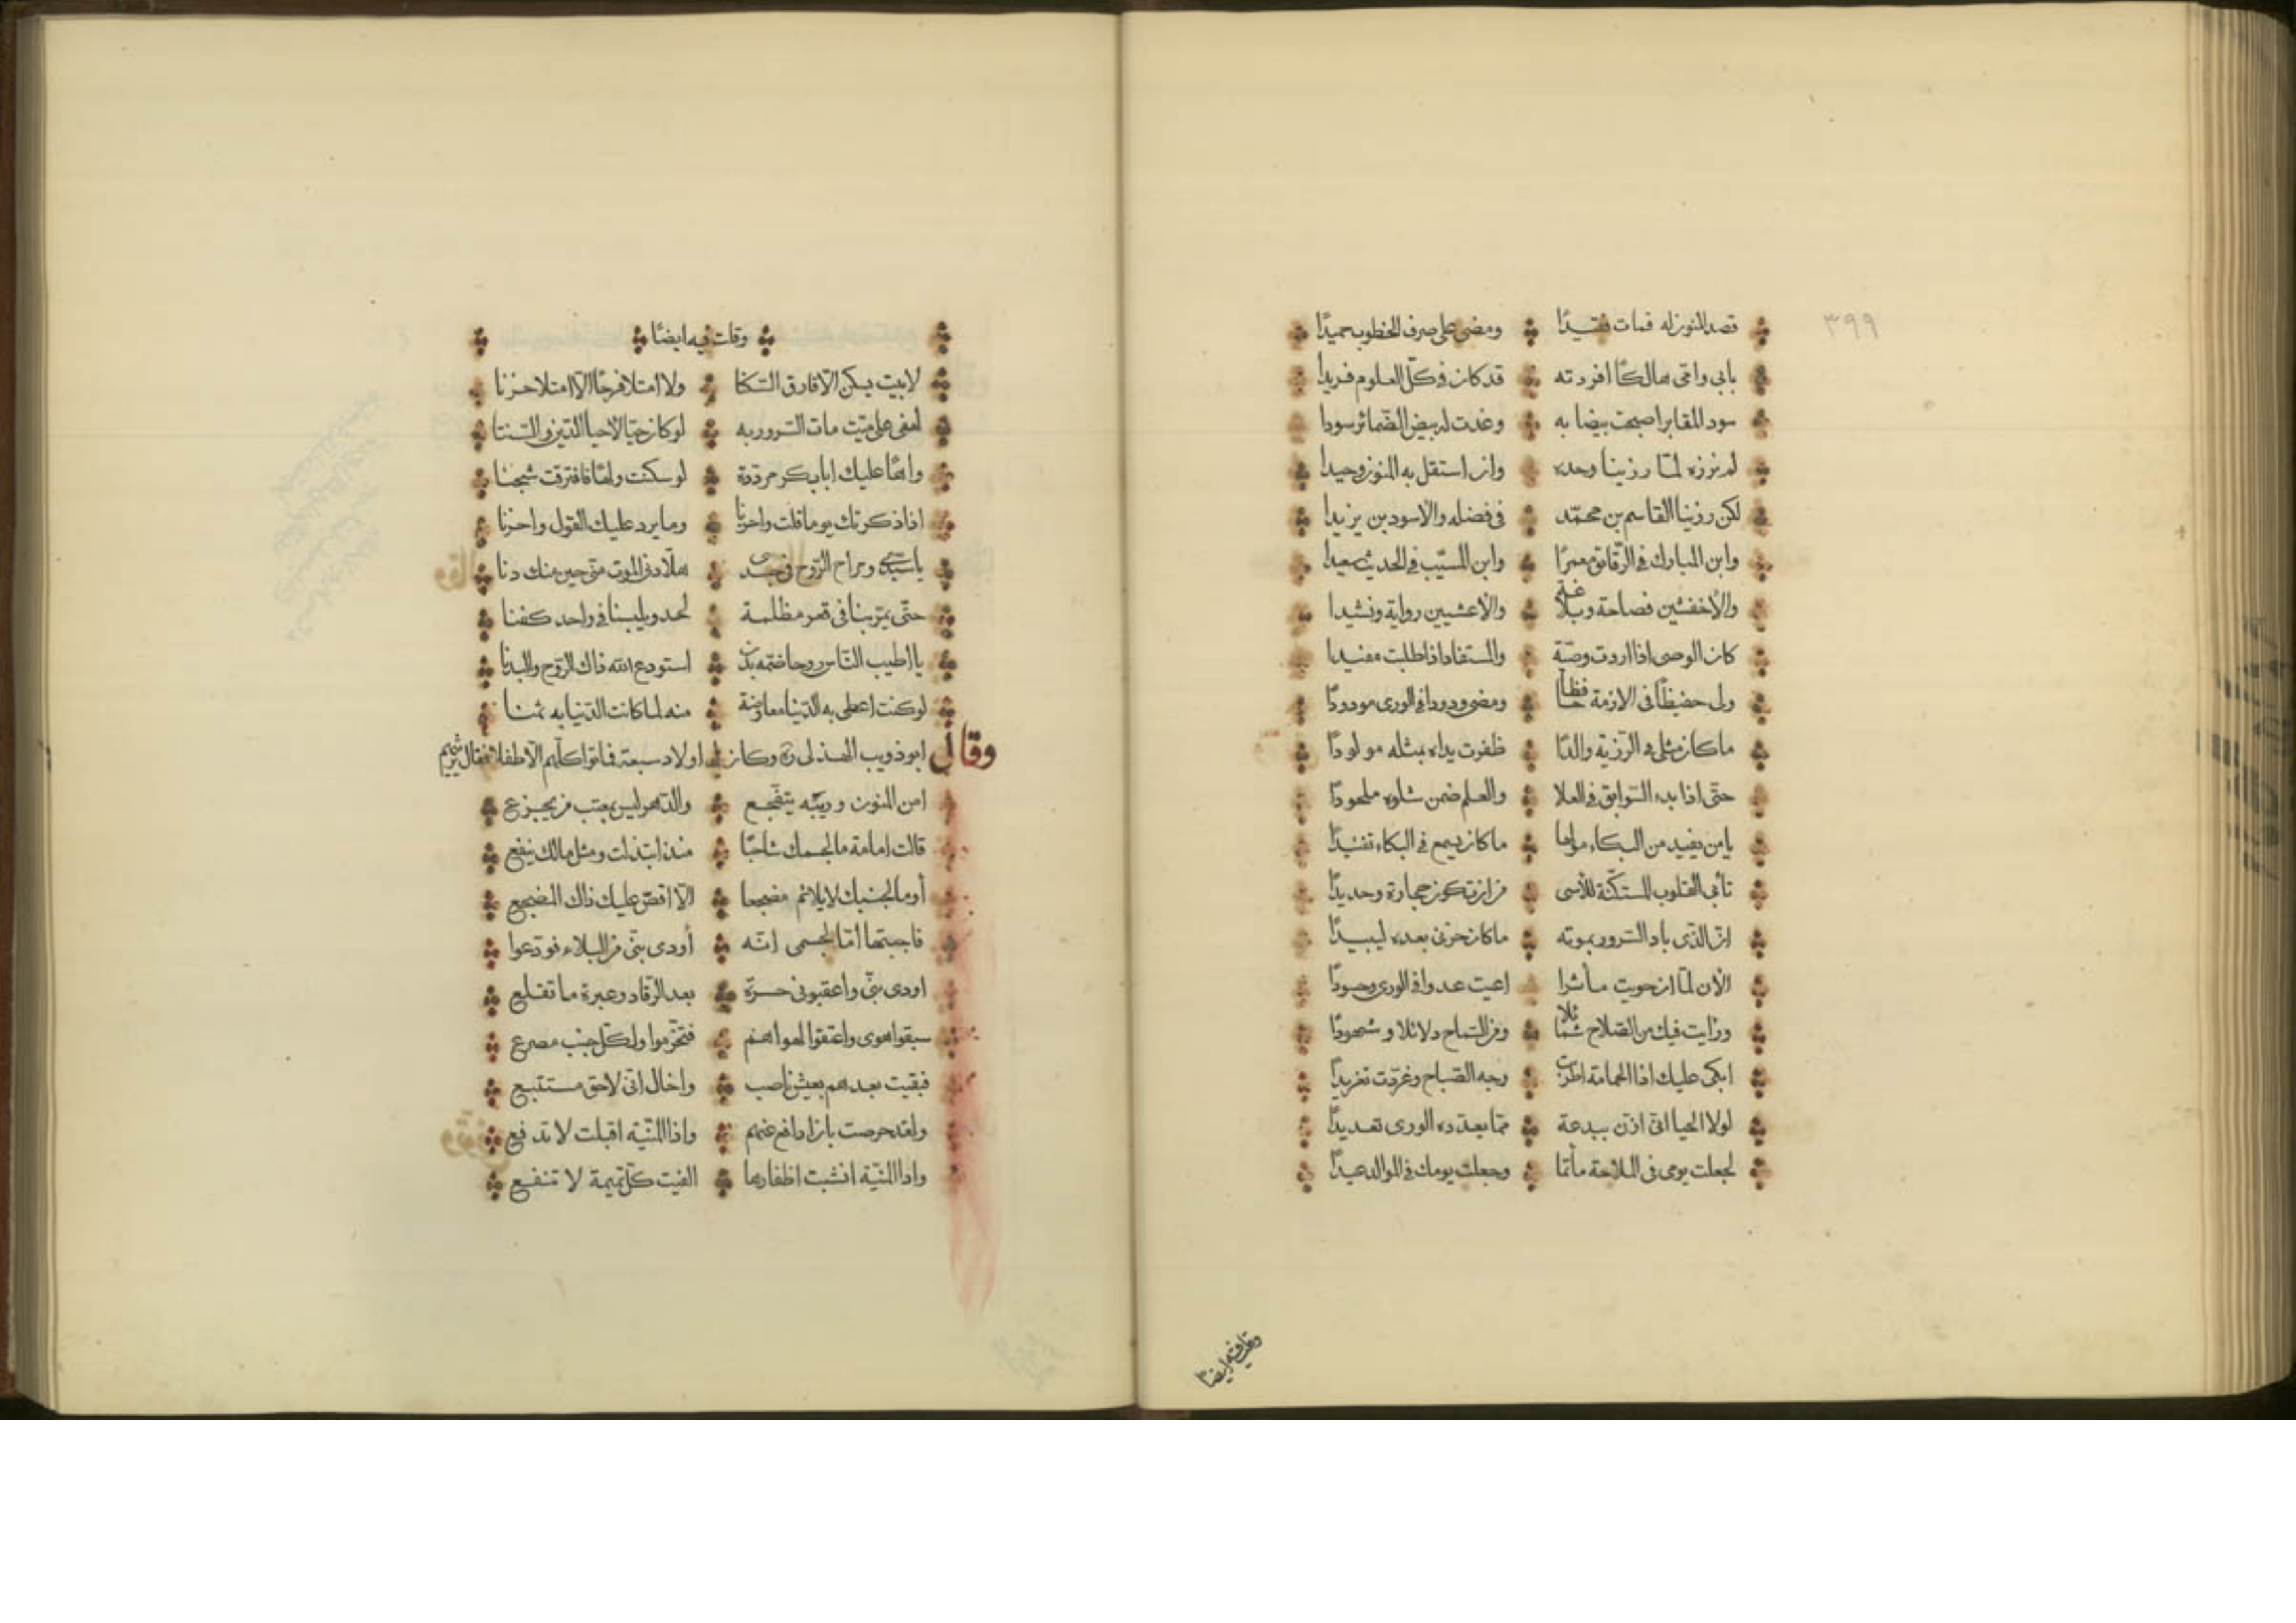 ٣٩٩
قصد المنون له فمات فقيدًا ومضى على صرف الخطوب حميدًا
بابى وامّى هالكًا افردته قد كان فى كلّ العلوم فريدا
سود المقابر اصبحت بيضا به وغدت له بيض الضّمائر سودا
لم نرزه لمّا رزينا وحده وان استقل به المنون وحيدا
لكن رزينا القاسم بن محمّد فى فضله والاسود بن يزيدا
وابن المبارك فى الرّقائق معمرًا وابن المسيّب فى الحديث سعيدا
والاخفشين فصاحة وبلاغة والاعشيين رواية ونشيدا
كان الوصى اذا اردت وصيّة والمستفاد اذا طلبت مفيدا
ولى حفيظًا فى الازمة حافظا ومضى ودودا فى الورى مودودًا
ما كان مثلى فى الرّزية والدًا ظفرت يداه بمثله مولودًا
حتى اذا بدء السّوابق فى العلا والعلم ضمن شلوه ملحودًا
يامن يفيد من البكاء مولها ما كان يسمع فى البكاء تفنيدًا
تأبى القلوب المستكنّة للأسى من ان تكون حجارة وحديدًا
انّ الذّى باد السّرور بموته ما كان حزنى بعده ليبيدًا
الآن لمّا ان حويت مأثرا اعيت عدوا فى الورى وحسودًا
ورايت فيك من الصّلاح شمائلا ومن السّماح دلائلا وشهودًا
ابكى عليك اذا الحمامة اطربت وجه الصّباح وغرّدت تغريدًا
لولا الحيا انّى ازنّ ببدعة ممّا يعدّده الورى تعديدًا
لجعلت يومى فى الملاحة مأتما وجعلت يومك فى الموالد عيدًا
وقلت فيه ايضا
وقلت فيه ايضًا
لابيت يسكن الّا فارق السّكنا ولا امتلا فرحًا الّا امتلا حزنا
لهفى على ميّت مات السّرور به لو كان حيّا لاحيا الدّين والسّننا
واهًا عليك ابا بكر مردّدة لو سكنت ولهًا فافترقت شجنا
اذا ذكرتك يوما قلت واحزنا وما يرد عليك القول واحزنا
ياسيّدى ومراح الرّوح فى جسدى هلّا دنى الموت منّى حين منك دنا
حتّى يمرّ بنا فى قعر مظلمة لحد ويلبسنا فى واحد كفنا
يا اطيب النّاس روحا ضمّه بدن استودع الله ذاك الرّوح والبدنا
لو كنت اعطى به الدّنيا معاوضة منه لما كانت الدّنيا به ثمنا
وقال ابو ذويب الهذلى وكان له اولاد سبعة فماتوا كلّهم الّا طفلا فقال يرثيهم
امن المنون وريبه يتفجّع والدّهر ليس بمعتب من يجزع
قالت امامة ما لجسمك شاحبًا منذ ابتذلت ومثل مالك ينفع
أوما لجنبك لا يلائم مضجعا الّا اقضّ عليك ذاك المضجع
فاجبتها امّا لجسمى انّه أودى بنّى من البلاء فودّعوا
اودى بنّى واعقبونى حسرة بعد الرّقاد وعبرة ما تقلع
سبقوا هوى واعنقوا لهواهم فتخّرموا ولكلّ جنب مصرع
فبقيت بعدهم بعيش ناصب واخال انّى لاحق مستتبع
ولقد حرصت بان ادافع عنهم واذا المنيّة اقبلت لا تدفع
واذا المنيّة انشبت اظفارها الفيت كلّ تميمة لا تنفع